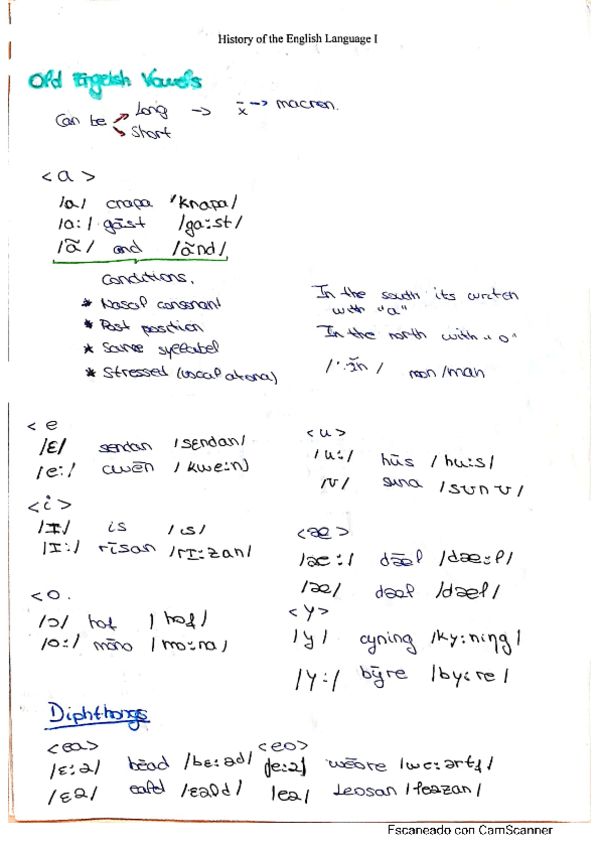 History of the English Language I
Old English Vowels
Can be → Long → x̄ --> macron.
→ Short
<a>
/a/ cnapa /knapa/
/a:/ gāst /ga:st/
/ã/ and /ãnd/
Conditions.
* Nasal consonant
* Post position
* Same syllabel
* Stressed (vocal atona)
In the south its written
with "a"
In the north with "o"
mon/man
<e
/ɛ/ sendan /sɛndan/
/e:/ cwēn /kwe:n/
<i>
/ɪ/ is /ɪs/
/ɪ:/ rīsan /rɪ:zan/
<o.
/ɔ/ hof /hɔf/
/o:/ mōna /mo:na/
<u>
/u:/ hūs /hu:s/
/ʊ/ suna /sʊnʊ/
<æ>
/æ:/ dǣl /dæ:l/
/æ/ dæl /dæl/
<y>
/y/ cyning /ky:ning/
/y:/ bȳre /by:re/
Diphthongs
<ea>
/ɛ:ə/ bēad /bɛ:əd/
/ɛə/ eald /ɛəld/
<eo>
/e:ə/
/eə/ leosan /leəzan/
Escaneado con CamScanner